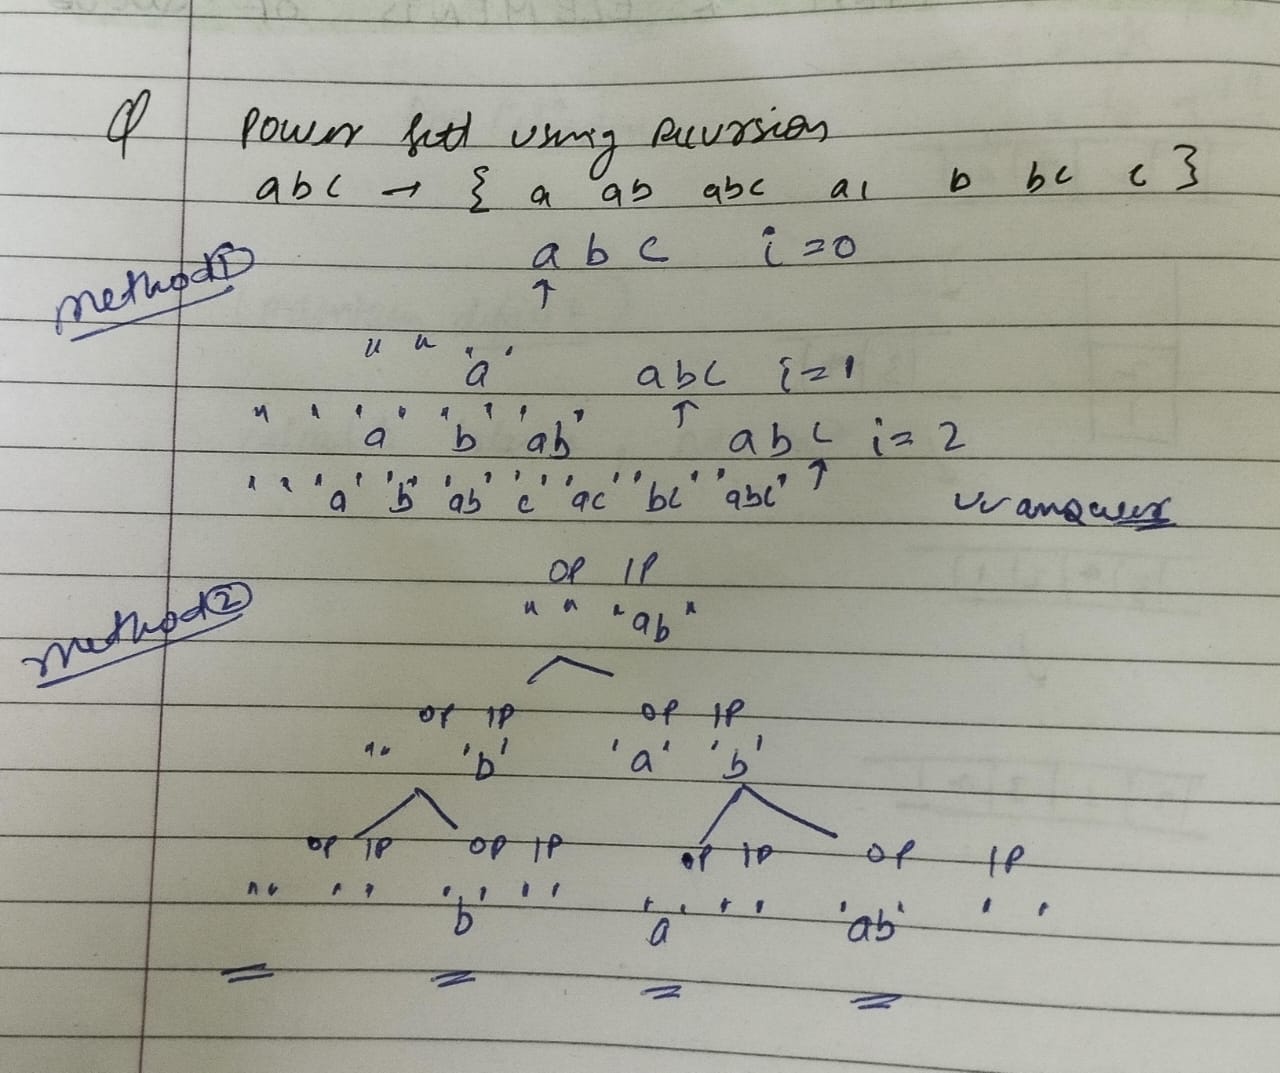 Q Power set using recursion
abc → { a ab abc ac b bc c }
Method ① a b c i=0
↑
" " 'a' abc i=1
↑
" " 'a' 'b' 'ab' abc i=2
↑
' ' 'a' 'b' 'ab' 'c' 'ac' 'bc' 'abc'
Method ② OP IP
" " "ab"
OP IP OP IP
"" 'b' 'a' 'b'
OP IP OP IP OP IP OP IP
"" '' 'b' '' 'a' '' 'ab' ' '